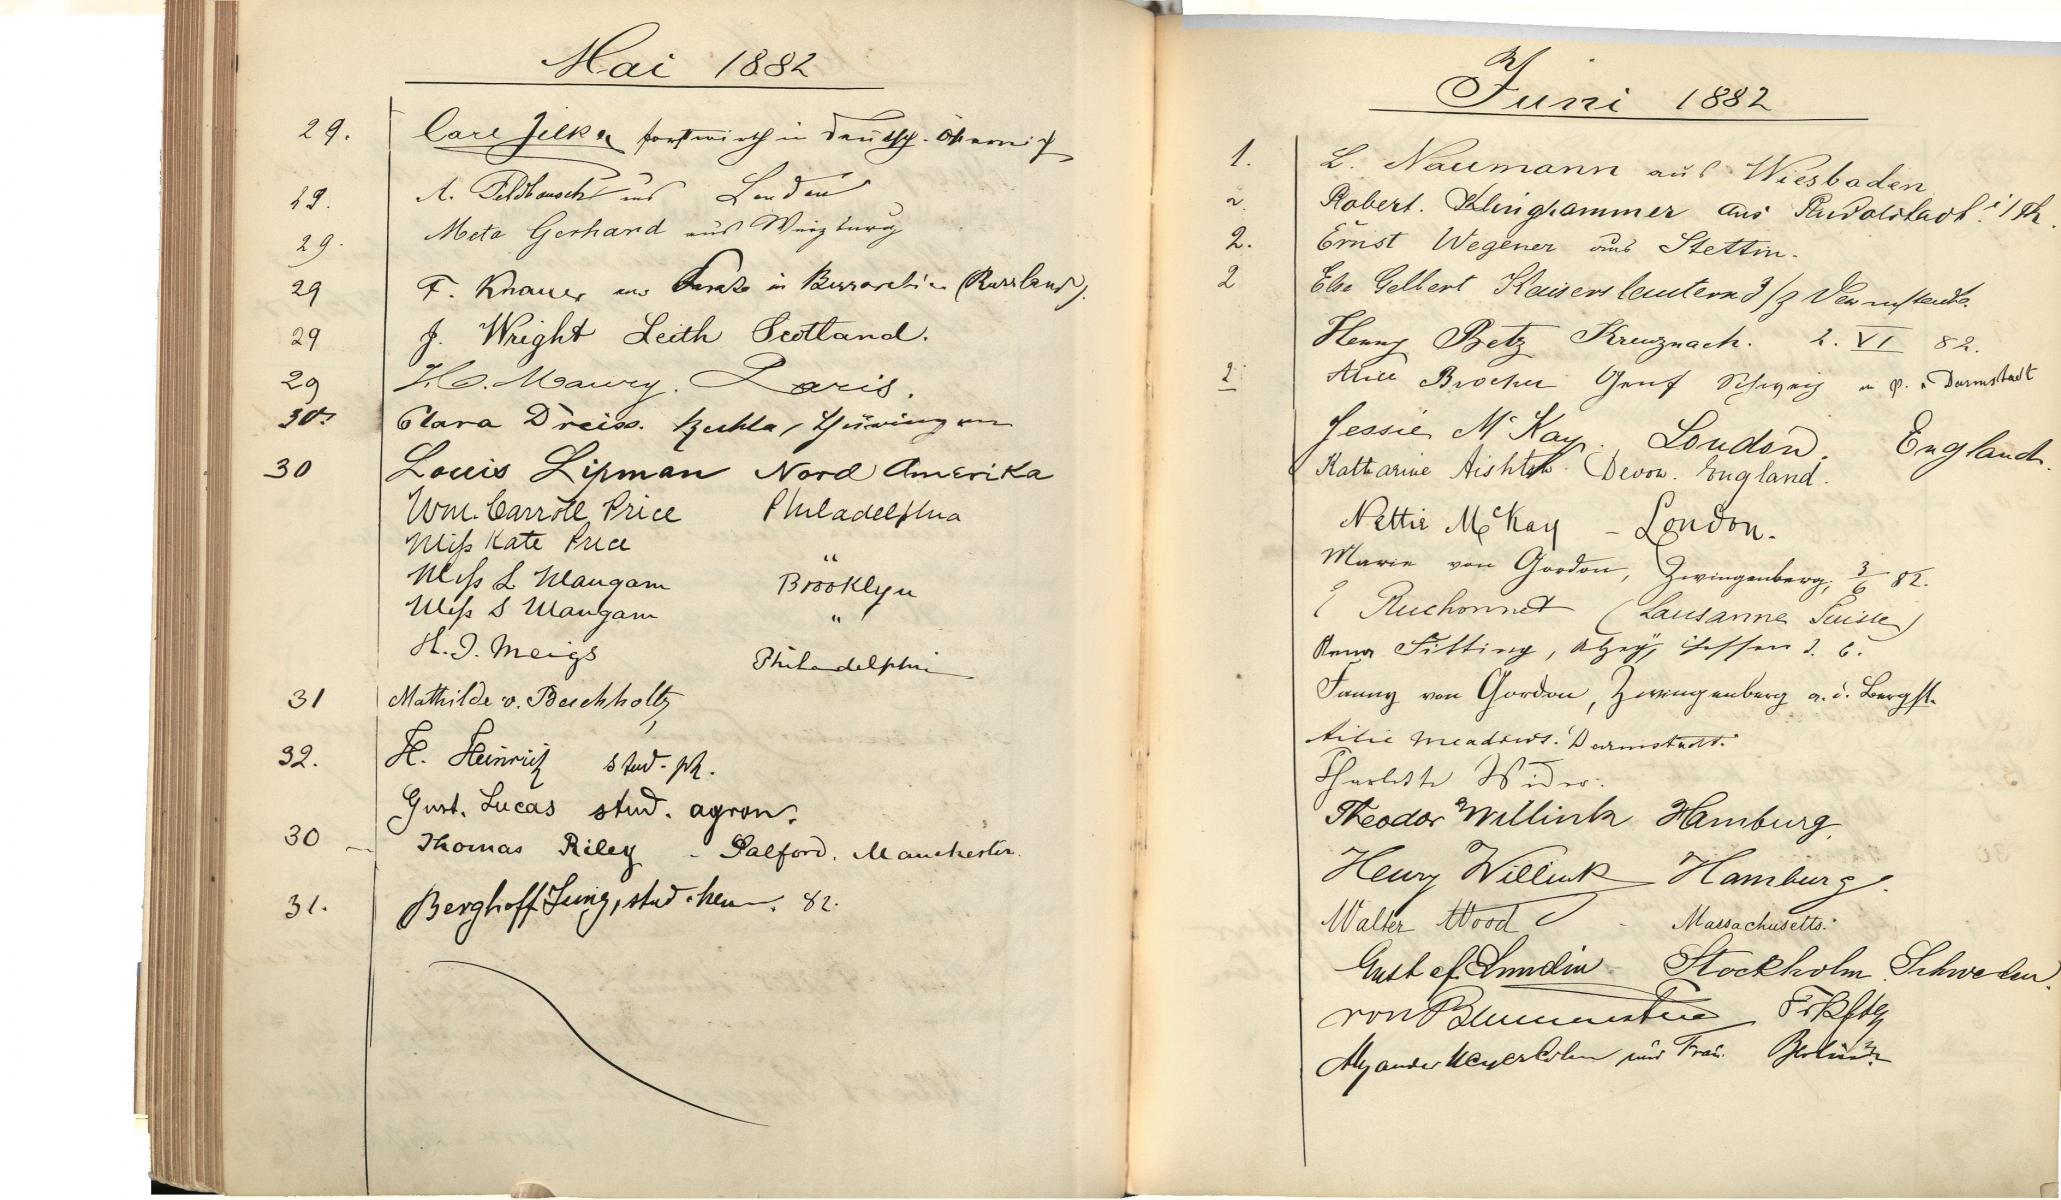 Mai 1882
29. Carl Jelken forstwirth in
29. A. aus London
29. Meta Gerhard aus Würzburg
29 F. Knauer aus in Bessarabien (Russland).
29 J. Wright Leith Scotland.
29 Maury. Paris.
30. Clara Dreiss. Thüringen
30 Louis Lipman Nord Amerika
Wm. Carroll Price Philadelphia
Miss Kate Price "
Miss L. Mangam Brooklyn
Miss S Mangam "
H. J. Meigs Philadelphia
31 Mathilde v.
32. H. Heinrich stud. ph.
Gust. Lucas stud. agron.
30 Thomas Riley - Salford. Manchester.
31. Berghoff Jung, stud. 82.
Juni 1882
1. L. Naumann aus Wiesbaden
2. Robert. Klinghammer aus Rudolstadt i/Th.
2. Ernst Wegener aus Stettin.
2 Else Gelbert Kaiserslautern
Henny Betz Kreuznach. 2. VI 82.
2 Alice Brocher Genf Schweiz Darmstadt
Jessie McKay. London. England.
Katharine Devon. England.
Nettie McKay - London.
Marie von Gordon, Zwingenberg, 3/6 82.
Ruchonnet (Lausanne Suisse)
Fitting, Alzey, Hessen 3. 6.
Fanny von Gordon, Zwingenberg a. d. Bergst.
Meadows. Darmstadt.
Theodor Willink Hamburg.
Henry Willink Hamburg.
Walter Wood - Massachusetts.
Gustaf Lundin Stockholm Schweden.
von
Alexander Meyer Cohn und Frau. Berlin